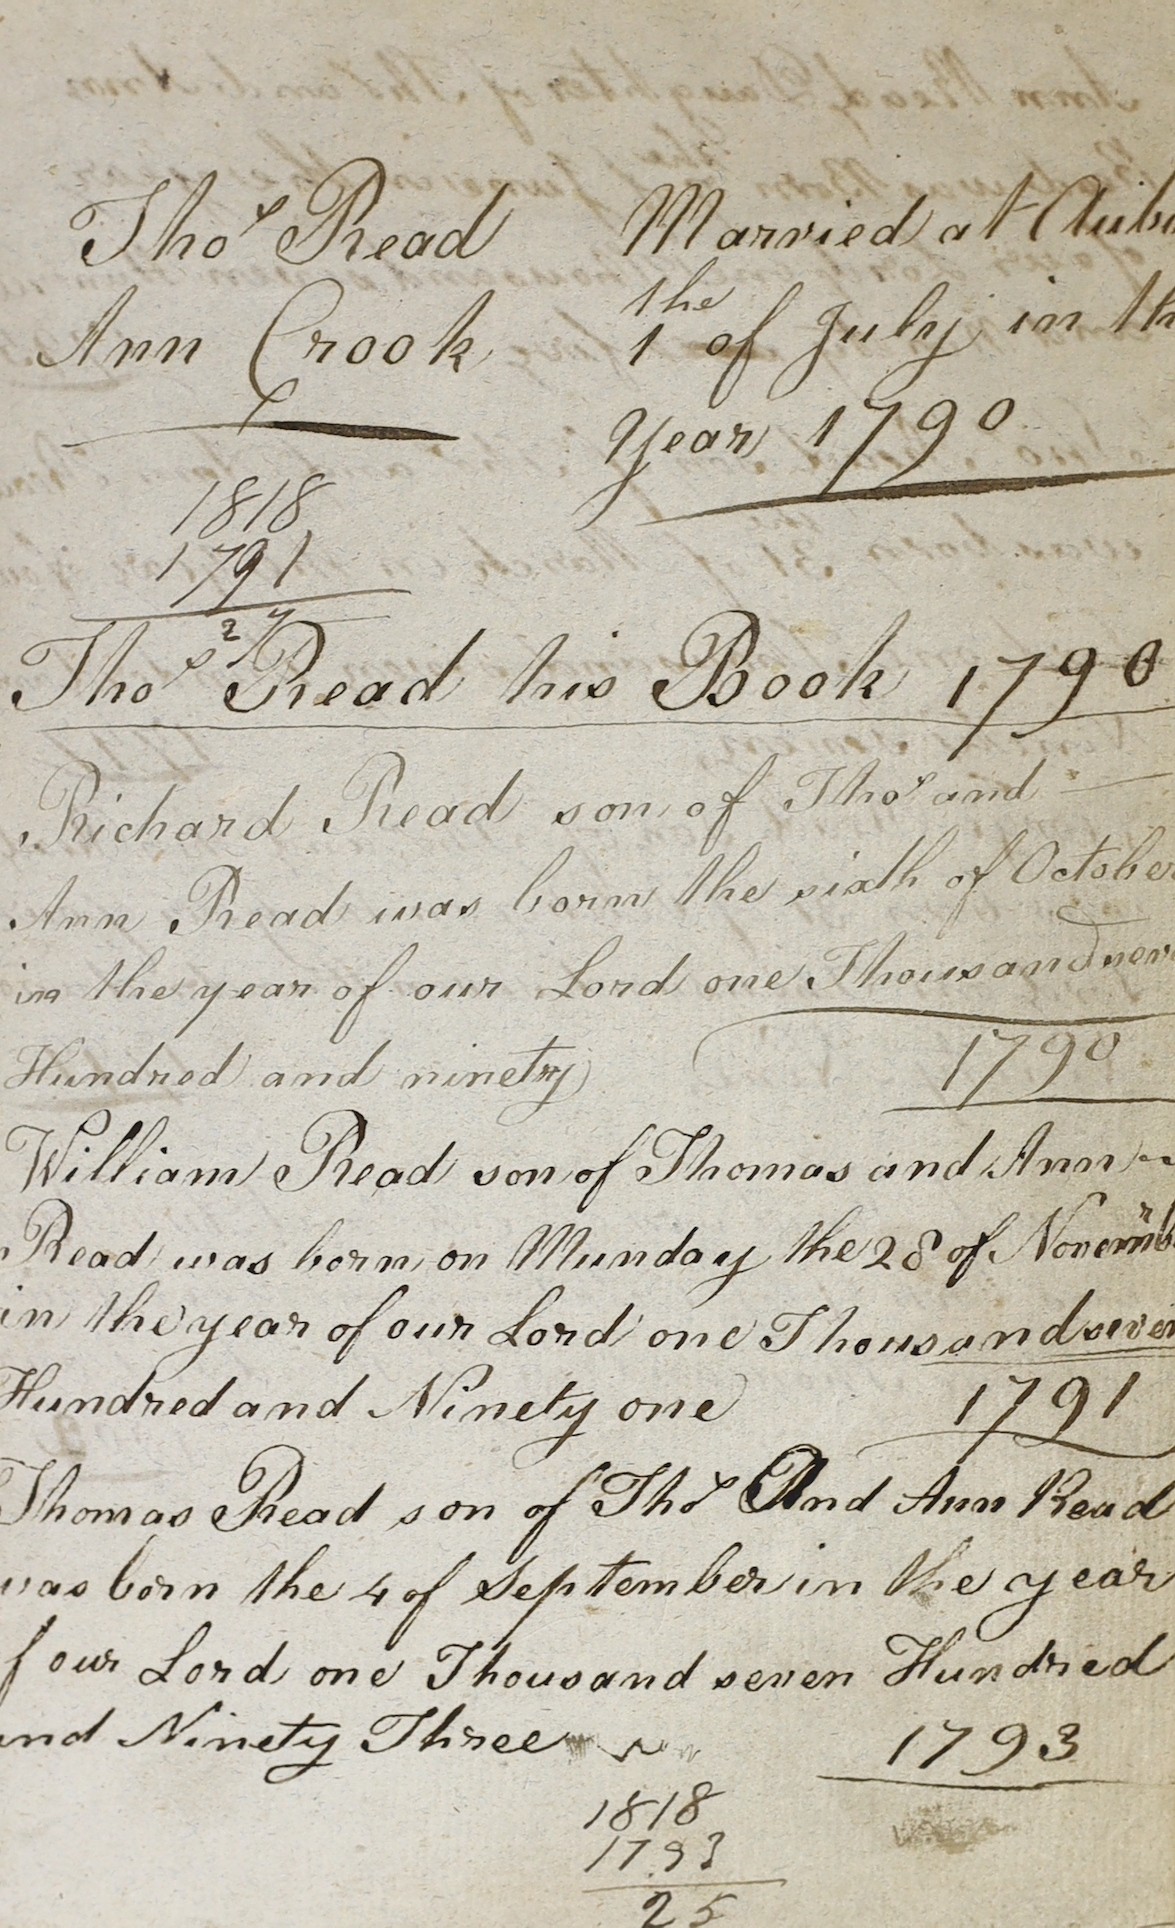 Thos Read
Ann Crook
Married at Aub
the
1 of July in th
Year 1790
1818
1791
27
Thos Read his Book 1790
Richard Read son of Thos and
Ann Read was born the sixth of October
in the year of our Lord one Thousand seve
Hundred and ninety
1790
William Read son of Thomas and Ann
Read was born on Munday the 28 of Novemb
in the year of our Lord one Thousand seven
Hundred and Ninety one 1791
Thomas Read son of Thos And Ann Read
was born the 4 of September in the year
f our Lord one Thousand seven Hundred
and Ninety Three 1793
1818
1793
25